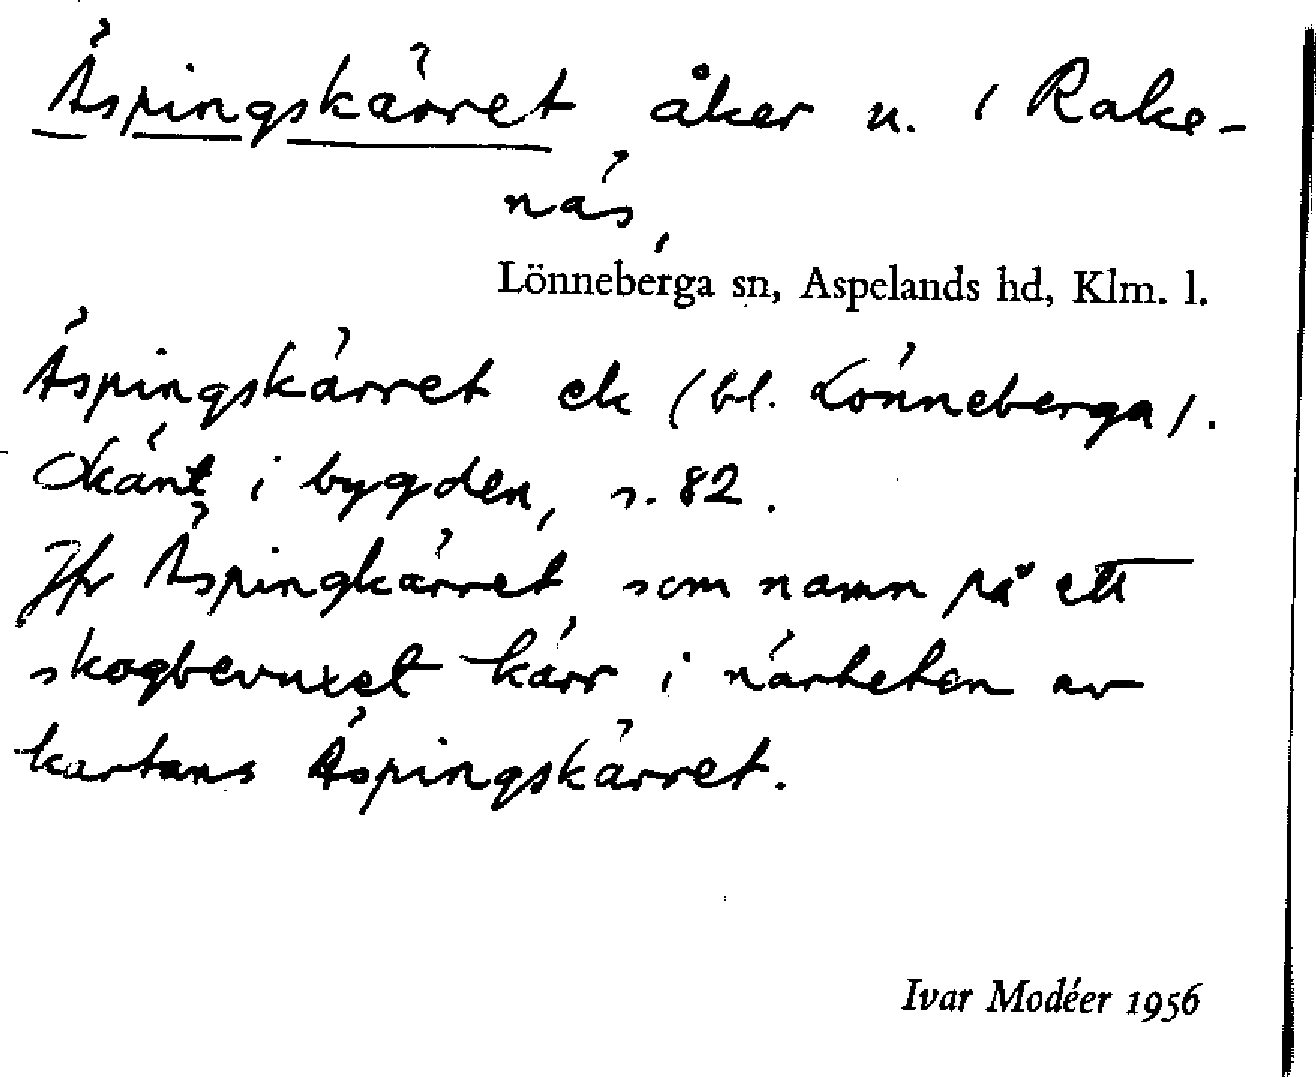 Äspingskärret åker n. i Rake-
näs,
Lönneberga sn, Aspelands hd, Klm. l.
Äspingskärret ek (bl. Lönneberga).
Okänt i bygden, s. 82.
Jfr Äspingkärret som namn på ett
skogbevuxet kärr i närheten av
kartans Äspingskärret.
Ivar Modéer 1956